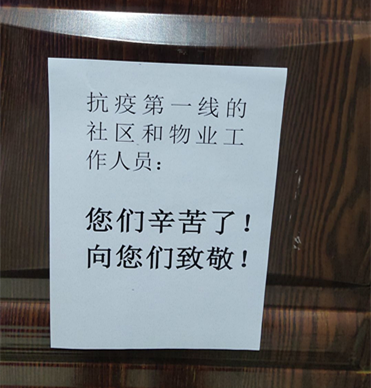 抗疫第一线的
社区和物业工
作人员：
您们辛苦了！
向您们致敬！